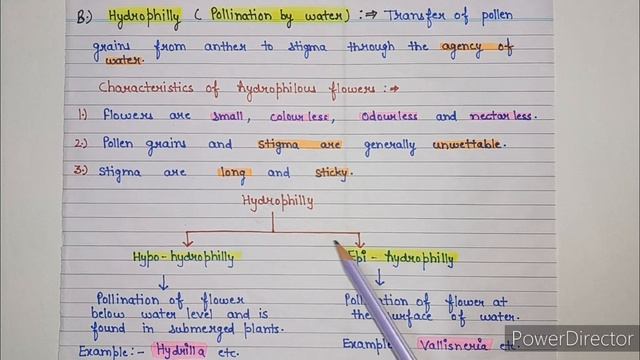 B.) Hydrophilly ( Pollination by water) :⇒ Transfer of pollen
grains from anther to stigma through the agency of
water.
Characteristics of Hydrophilous flowers :→
1.) Flowers are small, colourless, odourless and nectarless.
2.) Pollen grains and stigma are generally unwettable.
3.) Stigma are long and sticky.
Hydrophilly
Hypo-hydrophilly Epi-hydrophilly
Pollination of flower of flower at
below water level and is the of water.
found in submerged plants.
Example:- Hydrilla etc. Example Vallisneria etc
PowerDirector